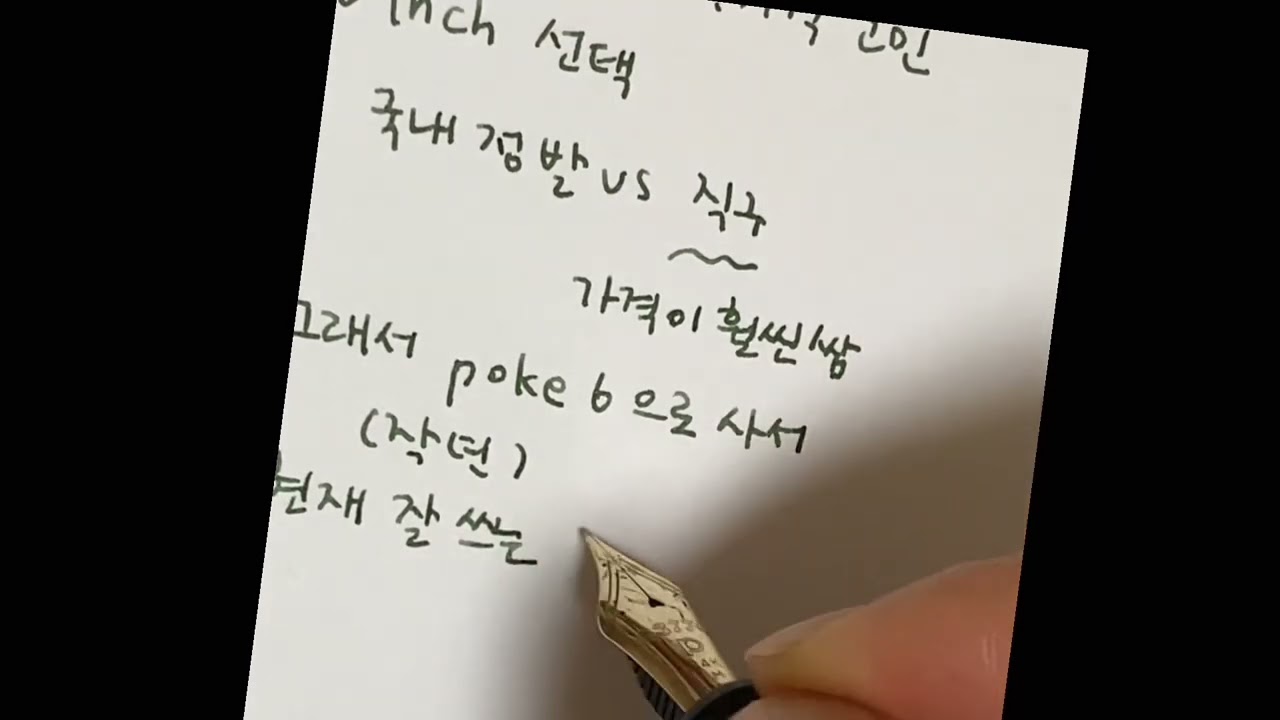 inch 선택
국내 정발 vs 직구
가격이 훨씬 쌈
그래서 poke 6으로 사서
(작년)
현재 잘 쓰는